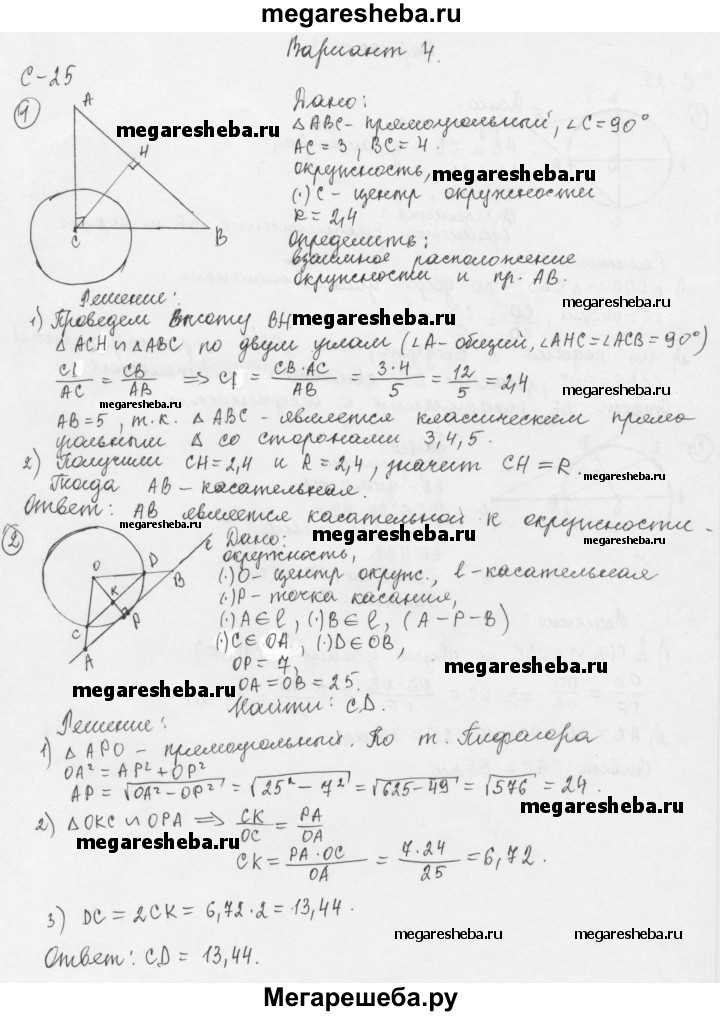 megaresheba.ru
Вариант 4.
С-25
1
A
H
C
B
Дано:
△ABC - прямоугольный, ∠C=90°
megaresheba.ru
AC=3, BC=4.
окружность,
megaresheba.ru
(·)C - центр окружности
R=2,4
Определить:
взаимное расположение
окружности и пр. AB.
Решение:
megaresheba.ru
1) Проведем высоту BH
megaresheba.ru
△ACH ∾ △ABC по двум углам (∠A-общий, ∠AHC=∠ACB=90°)
/AC = CB/AB ⇒ = CB·AC/AB = 3·4/5 = 12/5 = 2,4
megaresheba.ru
megaresheba.ru
AB=5, т.к. △ABC - является классическим прямо
угольным △ со сторонами 3,4,5.
2) Получили CH=2,4 и R=2,4, значит CH=R.
megaresheba.ru
Тогда AB - касательная.
Ответ: AB является касательной к окружности.
2
megaresheba.ru
megaresheba.ru
O
D
B
ℓ
K
P
C
A
Дано:
окружность,
(·)O - центр окруж., ℓ-касательная
(·)P - точка касания,
(·)A∈ℓ, (·)B∈ℓ, (A-P-B)
(·)C∈OA, (·)D∈OB,
OP=7,
megaresheba.ru
OA=OB=25.
megaresheba.ru
Найти: CD.
Решение:
1) △APO - прямоугольный. По т. Пифагора
OA²=AP²+OP²
AP=√(OA²-OP²) = √(25²-7²) = √(625-49) = √576 = 24.
megaresheba.ru
2) △OKC ∾ OPA ⇒ CK/OC = PA/OA
megaresheba.ru
CK = PA·OC/OA = 7·24/25 = 6,72.
3) DC=2CK=6,72·2=13,44.
megaresheba.ru
megaresheba.ru
Ответ: CD=13,44.
Мегарешеба.ру